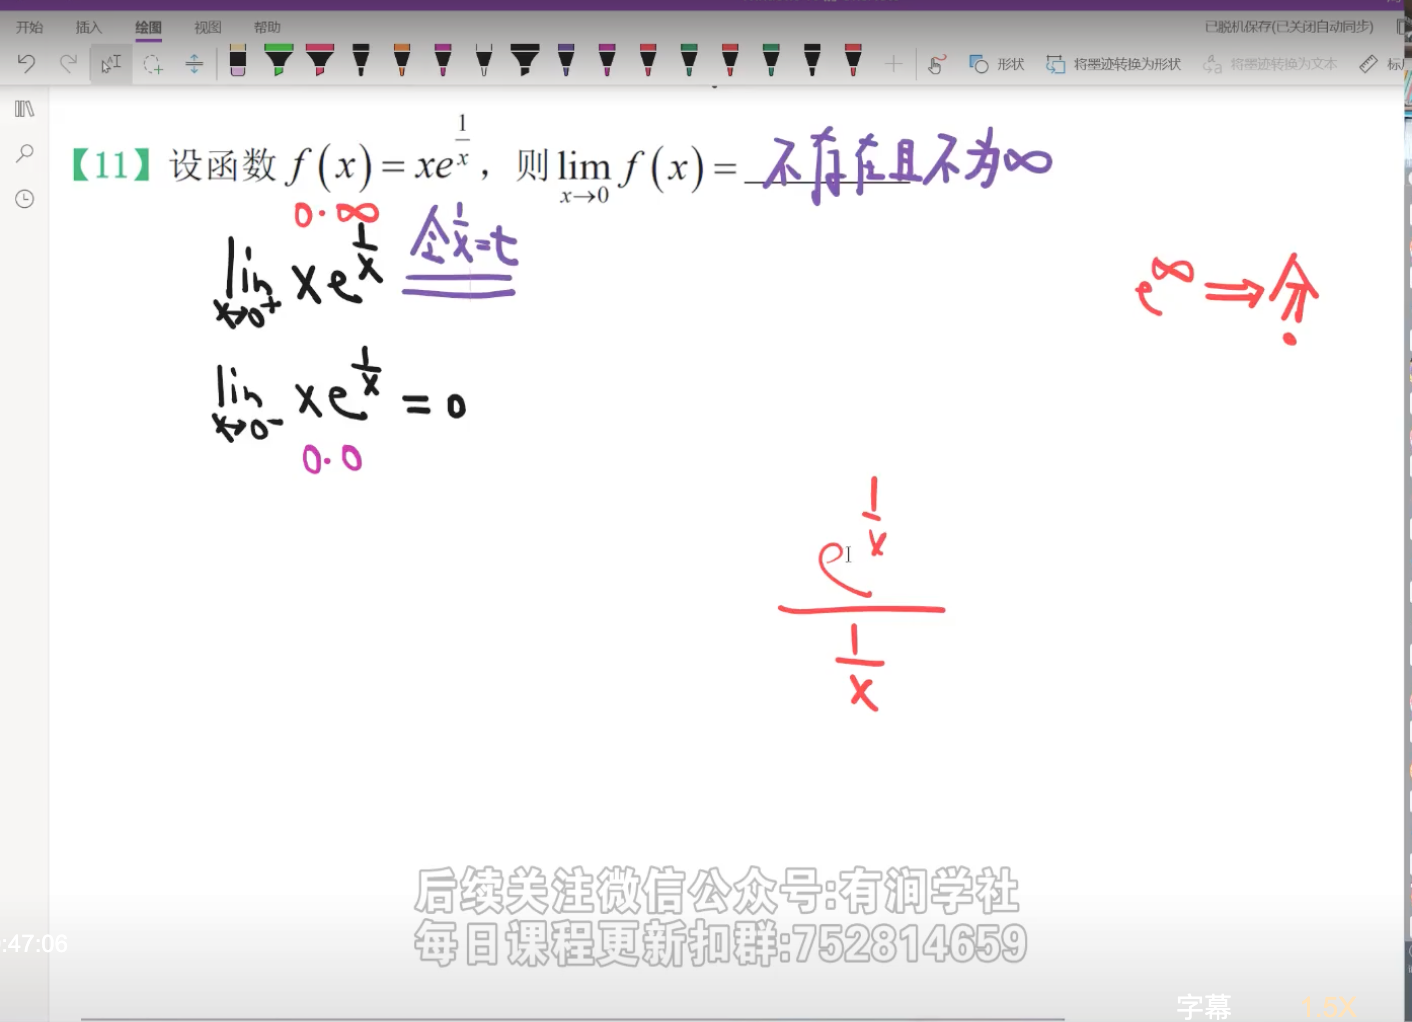 开始 插入 绘图 视图 帮助 已脱机保存(已关闭自动同步)
形状 将墨迹转换为形状 将墨迹转换为文本
【11】设函数 f(x)=xe^{1/x}，则 lim_{x→0} f(x)= 不存在且不为∞
0·∞
lim_{x→0⁺} xe^{1/x} 令1/x=t
e^∞ ⇒ 分
lim_{x→0⁻} xe^{1/x} = 0
0·0
e^{1/x}
1/x
后续关注微信公众号:有润学社
每日课程更新扣群:752814659
:47:06
字幕 1.5X